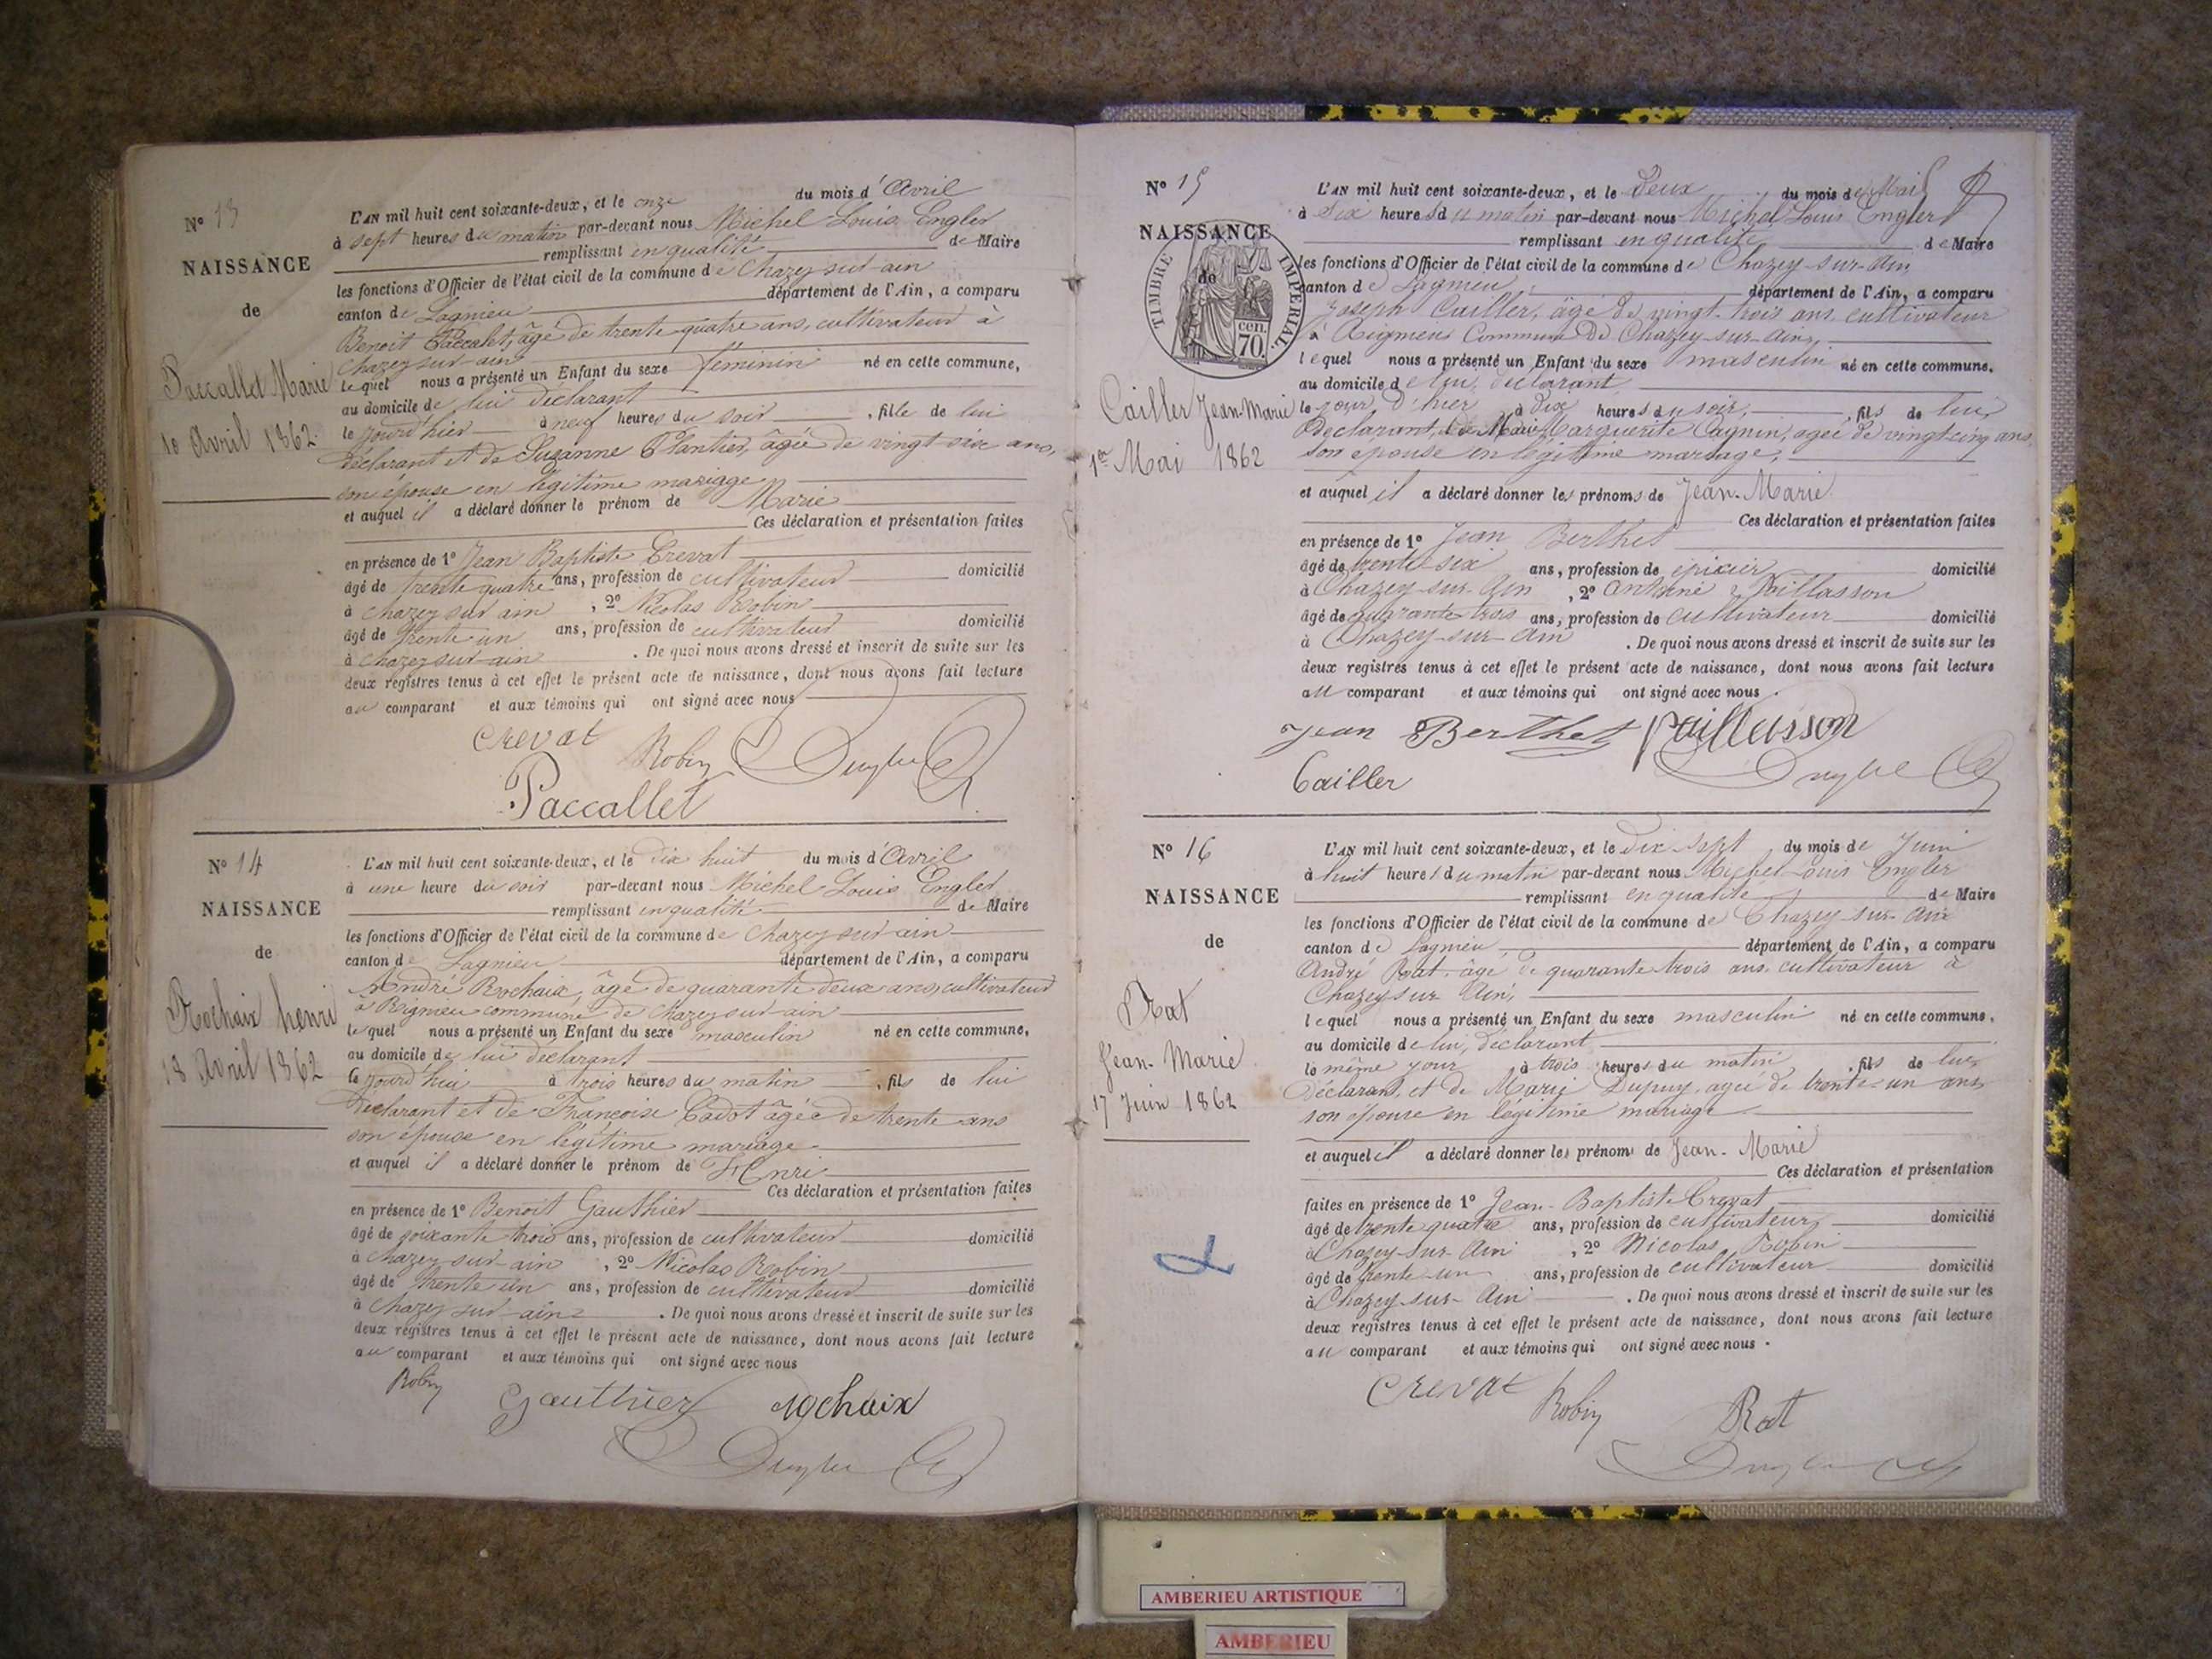 N° 13
NAISSANCE
de
Paccallet Marie
10 Avril 1862.
L'AN mil huit cent soixante-deux, et le onze du mois d'Avril
à sept heures du matin par-devant nous Michel Louis Engler
remplissant en qualité de Maire
les fonctions d'Officier de l'état civil de la commune de Chazey sur ain
canton de Lagnieu département de l'Ain, a comparu
Benoit Paccalet, âgé de trente quatre ans, cultivateur à
chazey sur ain
lequel nous a présenté un Enfant du sexe féminin né en cette commune,
au domicile de lui déclarant
le jourd'hier à neuf heures du soir, fille de lui
déclarant et de Suzanne Plantier, âgée de vingt six ans,
son épouse en légitime mariage
et auquel il a déclaré donner le prénom de Marie
Ces déclaration et présentation faites
en présence de 1° Jean Baptiste Crevat
âgé de trente quatre ans, profession de cultivateur domicilié
à chazey sur ain, 2° Nicolas Robin
âgé de trente un ans, profession de cultivateur domicilié
à chazey sur ain. De quoi nous avons dressé et inscrit de suite sur les
deux registres tenus à cet effet le présent acte de naissance, dont nous avons fait lecture
au comparant et aux témoins qui ont signé avec nous
Crevat Robin
Paccallet
N° 14
NAISSANCE
de
Rochaix henri
18 Avril 1862
L'AN mil huit cent soixante-deux, et le dix huit du mois d'Avril
à une heure du soir par-devant nous Michel Louis Engler
remplissant en qualité de Maire
les fonctions d'Officier de l'état civil de la commune de chazey sur ain
canton de Lagnieu département de l'Ain, a comparu
André Rochaix, âgé de quarante deux ans, cultivateur
à Rigneu commune de chazey sur ain
lequel nous a présenté un Enfant du sexe masculin né en cette commune,
au domicile de lui déclarant
le jourd'hui à trois heures du matin, fils de lui
déclarant et de Françoise Cadot âgée de trente ans
son épouse en légitime mariage
et auquel il a déclaré donner le prénom de Henri
Ces déclaration et présentation faites
en présence de 1° Benoit Gauthier
âgé de soixante trois ans, profession de cultivateur domicilié
à chazey sur ain, 2° Nicolas Robin
âgé de trente un ans, profession de cultivateur domicilié
à chazey sur ain. De quoi nous avons dressé et inscrit de suite sur les
deux registres tenus à cet effet le présent acte de naissance, dont nous avons fait lecture
au comparant et aux témoins qui ont signé avec nous
Robin Gauthier rochaix
N° 15
NAISSANCE
de
TIMBRE IMPERIAL
cen.
70.
Cailler Jean-Marie
1er Mai 1862
L'AN mil huit cent soixante-deux, et le deux du mois de Mai
à six heures du matin par-devant nous Michel Louis Engler
remplissant en qualité de Maire
les fonctions d'Officier de l'état civil de la commune de Chazey-sur-Ain
canton de Lagnieu, département de l'Ain, a comparu
Joseph Cailler, âgé de vingt-trois ans cultivateur
à Rigneu Commune de Chazey-sur-Ain,
lequel nous a présenté un Enfant du sexe masculin né en cette commune.
au domicile de lui, déclarant
le jour d'hier à dix heures du soir, fils de lui,
Déclarant, et de Marguerite Cagnin, agée de vingt-cinq ans
son épouse en légitime mariage,
et auquel il a déclaré donner les prénoms de Jean-Marie
Ces déclaration et présentation faites
en présence de 1° Jean Berthet
âgé de trente-six ans, profession de épicier domicilié
à Chazey-sur-Ain, 2° Antoine Paillasson
âgé de quarante trois ans, profession de cultivateur domicilié
à Chazey-sur-Ain. De quoi nous avons dressé et inscrit de suite sur les
deux registres tenus à cet effet le présent acte de naissance, dont nous avons fait lecture
au comparant et aux témoins qui ont signé avec nous.
Jean Berthet Paillasson
Cailler
N° 16
NAISSANCE
de
Rat
Jean-Marie
17 Juin 1862
L'AN mil huit cent soixante-deux, et le dix sept du mois de Juin
à huit heures du matin par-devant nous Michel Louis Engler
remplissant en qualité de Maire
les fonctions d'Officier de l'état civil de la commune de Chazey-sur-Ain
canton de Lagnieu département de l'Ain, a comparu
André Rat, âgé de quarante trois ans, cultivateur à
Chazey sur Ain,
lequel nous a présenté un Enfant du sexe masculin né en cette commune,
au domicile de lui, déclarant
le même jour à trois heures du matin, fils de lui,
Déclarant, et de Marie Dupuy, agée de trente-un ans
son épouse en légitime mariage
et auquel il a déclaré donner les prénoms de Jean-Marie
Ces déclaration et présentation
faites en présence de 1° Jean-Baptiste Crevat
âgé de trente quatre ans, profession de cultivateur, domicilié
à Chazey-sur-Ain, 2° Nicolas Robin
âgé de trente-un ans, profession de cultivateur domicilié
à Chazey-sur-Ain. De quoi nous avons dressé et inscrit de suite sur les
deux registres tenus à cet effet le présent acte de naissance, dont nous avons fait lecture
au comparant et aux témoins qui ont signé avec nous.
Crevat Robin Rat
AMBERIEU ARTISTIQUE
AMBERIEU